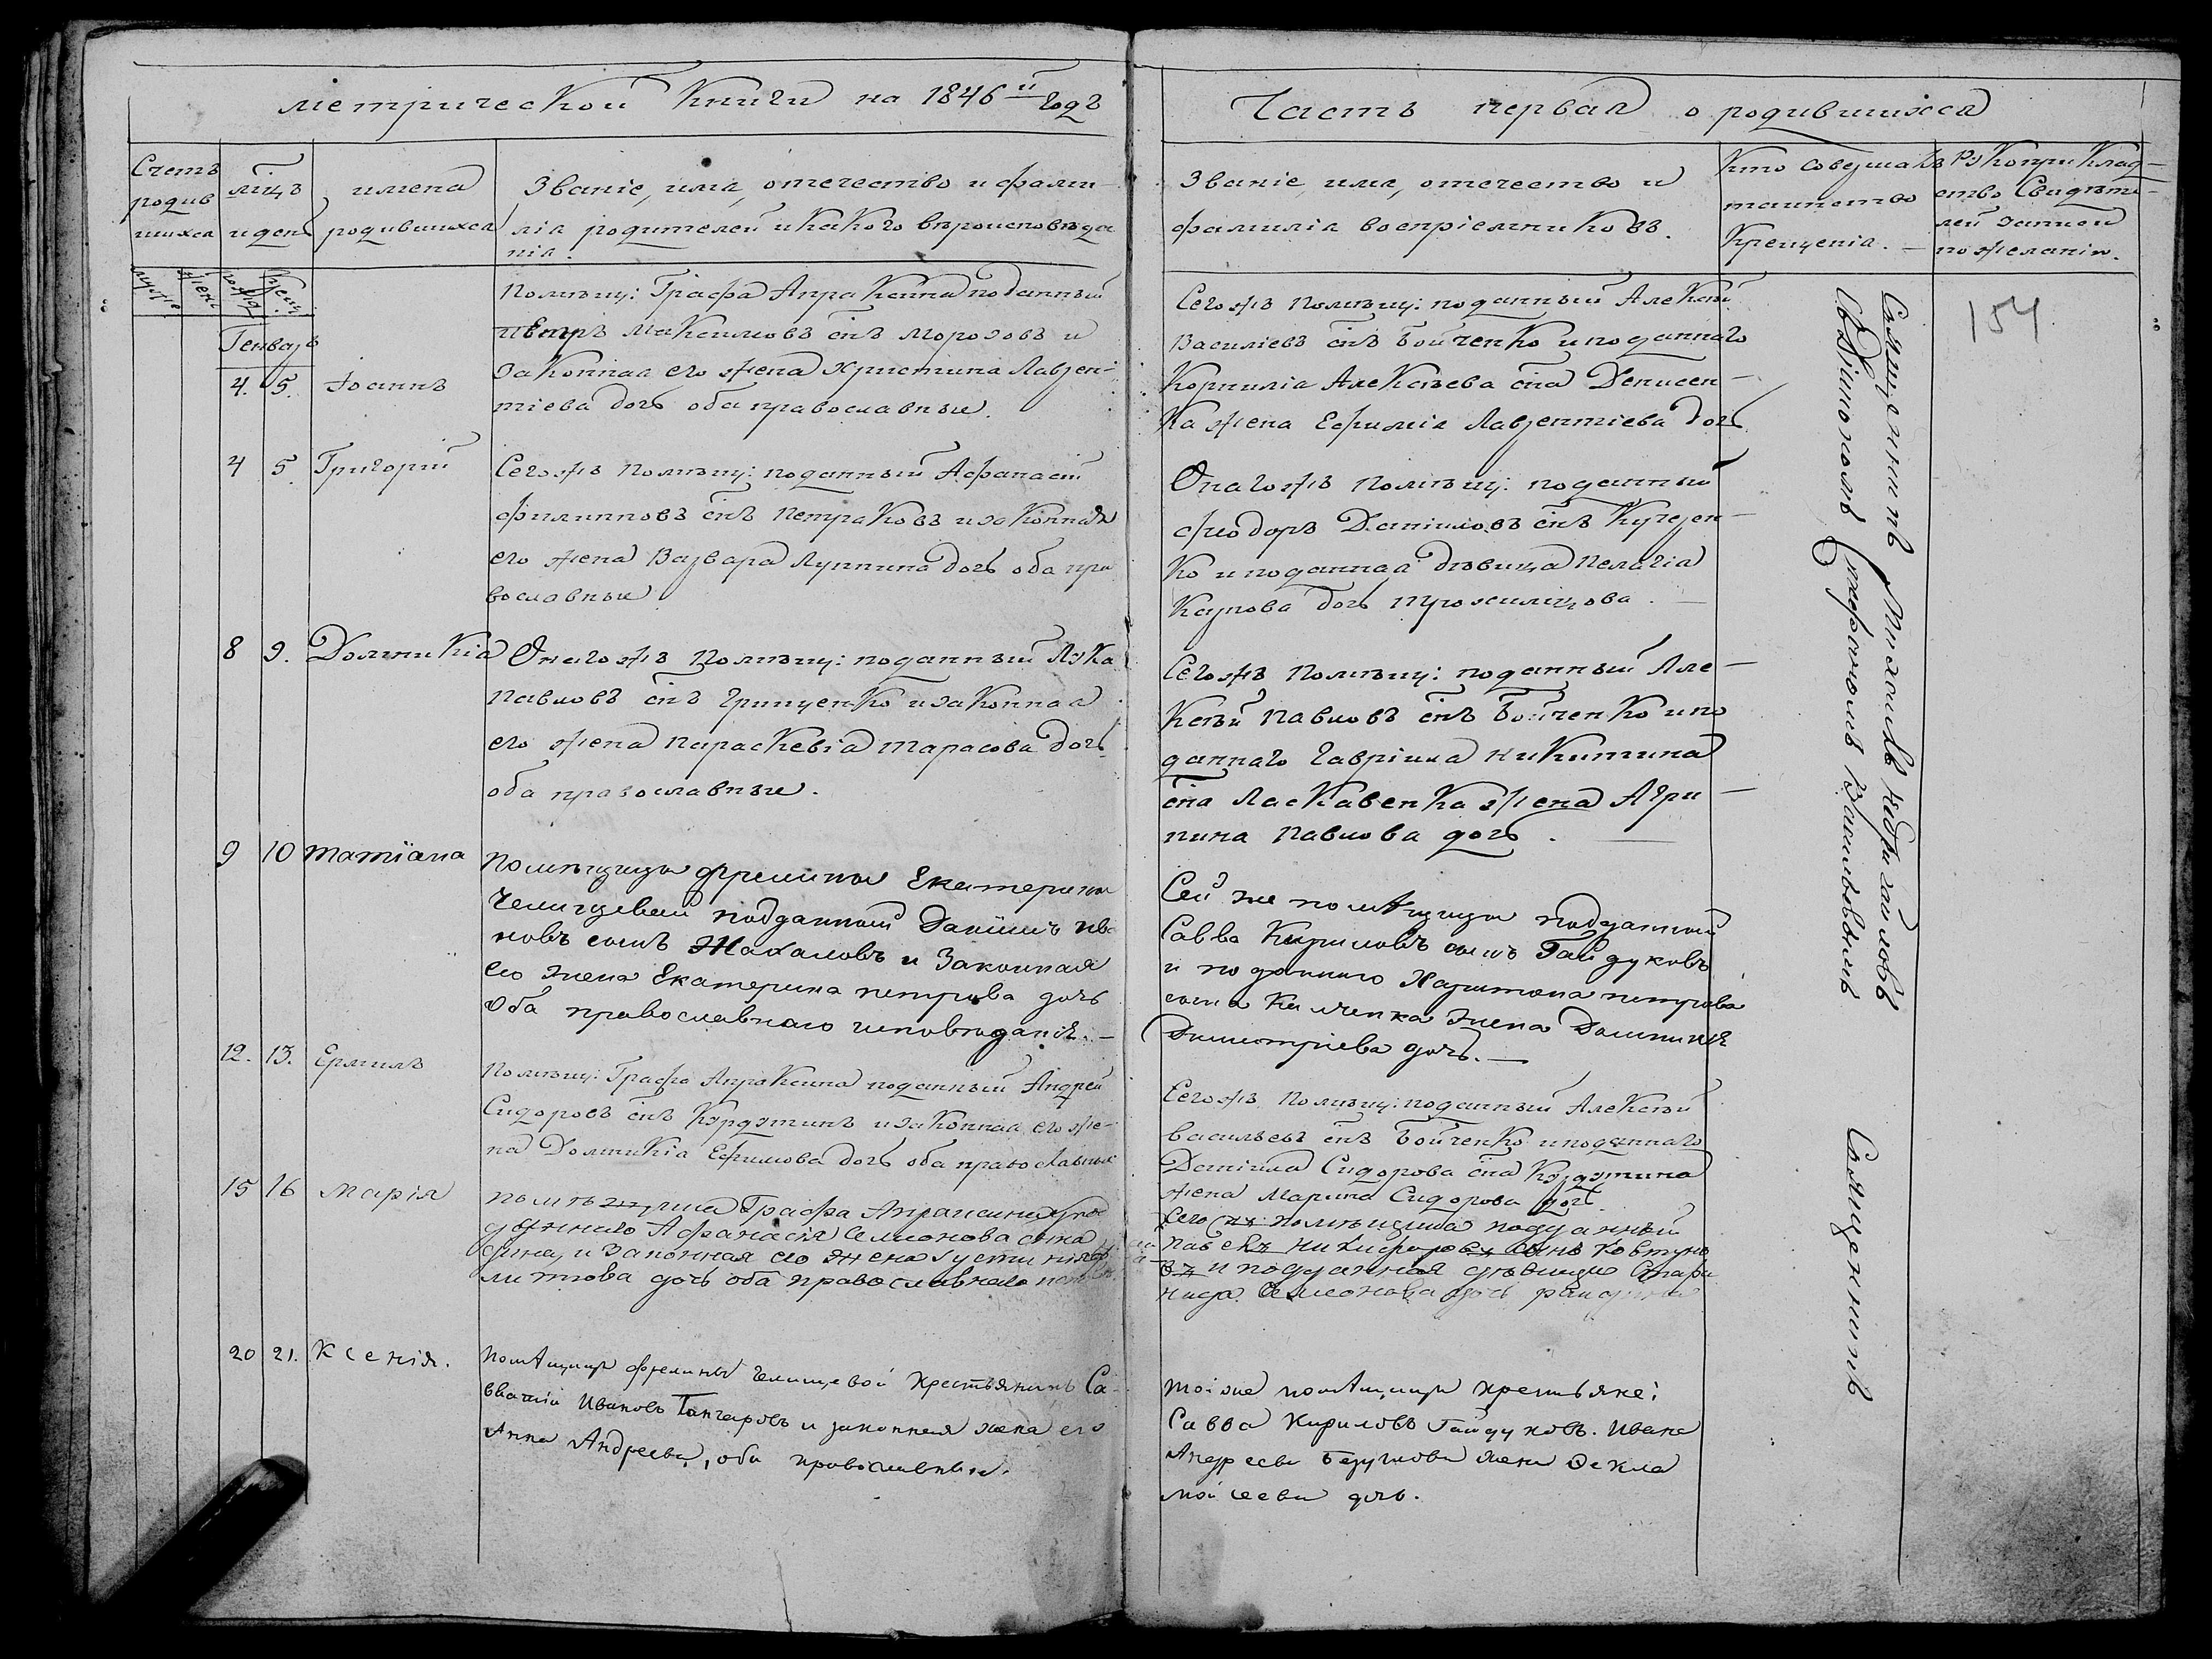 метрической Книги на 1846й годъ
Часть первая о родившихся
Счетъ родив шихся
мцъ и день
имена родившихся
Званіе, имя, отечество и фами-
лія родителей и какого вѣроисповѣда
нія.
Званіе имя, отечество и
фамилія воспріемниковъ.
Кто совершалъ
таинство
Крещенія. —
Рукоприклад-
ство Свидѣте-
лей записи
по желанію.
Генварь
4. 5. Іоаннъ
Помѣщ: Графа Апраксина поданный
Петръ Максимовъ снъ Морозовъ и
законная его жена Христина Лаврен-
тіева дочь оба православные.
Сегожъ Помѣщ: поданный Алексѣй
Василіевъ снъ Бойченко и поданнаго
Корнилія Алексѣева сна Денисен-
ка жена Ефимія Лаврентіева дочь
154
4 5. Григорій
Сегожъ Помѣщ: поданный Афанасій
Филипповъ снъ Петраковъ и законная
его жена Варвара Луппина дочь оба пра
вославные
Онагожъ Помѣщ: поданный
Феодоръ Даніиловъ снъ Кучерен-
ко и поданная дѣвица Пелагія
Карпова дочь
8 9. Домникіа
Онагожъ Помѣщ: поданный Лука
Павловъ снъ Гриценко и законная
его жена Параскевіа Тарасова дочь
оба православные.
Сегожъ Помѣщ: поданный Але-
ксѣй Павловъ снъ Бойченко и по
даннаго Гавріила Никитина
сна Ласкавенка жена Агри-
пина Павлова дочь. —
9 10 Татіана
Помѣщицы Фрелины Екатерины
Челищевой подданный Даніилъ Ива
новъ сынъ Жахаловъ и Законная
его жена Екатерина петрова дочь
Оба православнаго исповѣданія. —
Сей же помѣщицы подданный
Савва Кириловъ сынъ Гайдуковъ
и поданнаго Харитона петрова
сына жена Домникія
Димитріева дочь. —
12. 13. Ермилъ
Помѣщ: Графа Апраксина поданный Андрей
Сидоровъ снъ Курдюминъ и законная его же-
на Домникіа Ефимова дочь оба православные
Сегожъ Помѣщ: поданный Алексѣй
Васильевъ снъ Бойченко и поданнаго
Даніила Сидорова сна
жена Марина Сидорова дочь.
15 16 Марія
Графа Апраксина
Афанасія Семионова сына
и Законная его жена Густинія
дочь оба православнаго
Сего помѣщика подданный
Павелъ Никифоровъ сынъ Ковтуно
въ и подданная дѣвица
Семионова дочь
20 21. Ксенія.
Помѣщицы фрелины Челищевой крестьянинъ Са-
ватій Ивановъ Ганчаровъ и законная жена его
Анна Андреева, оба православныи.
Тойже помѣщицы крестьяне:
Савва Кириловъ Гайдуковъ. Ивана
Андреева жена Ѳекла
Мойсеева дочь.
Священникъ Михаилъ
Священникъ